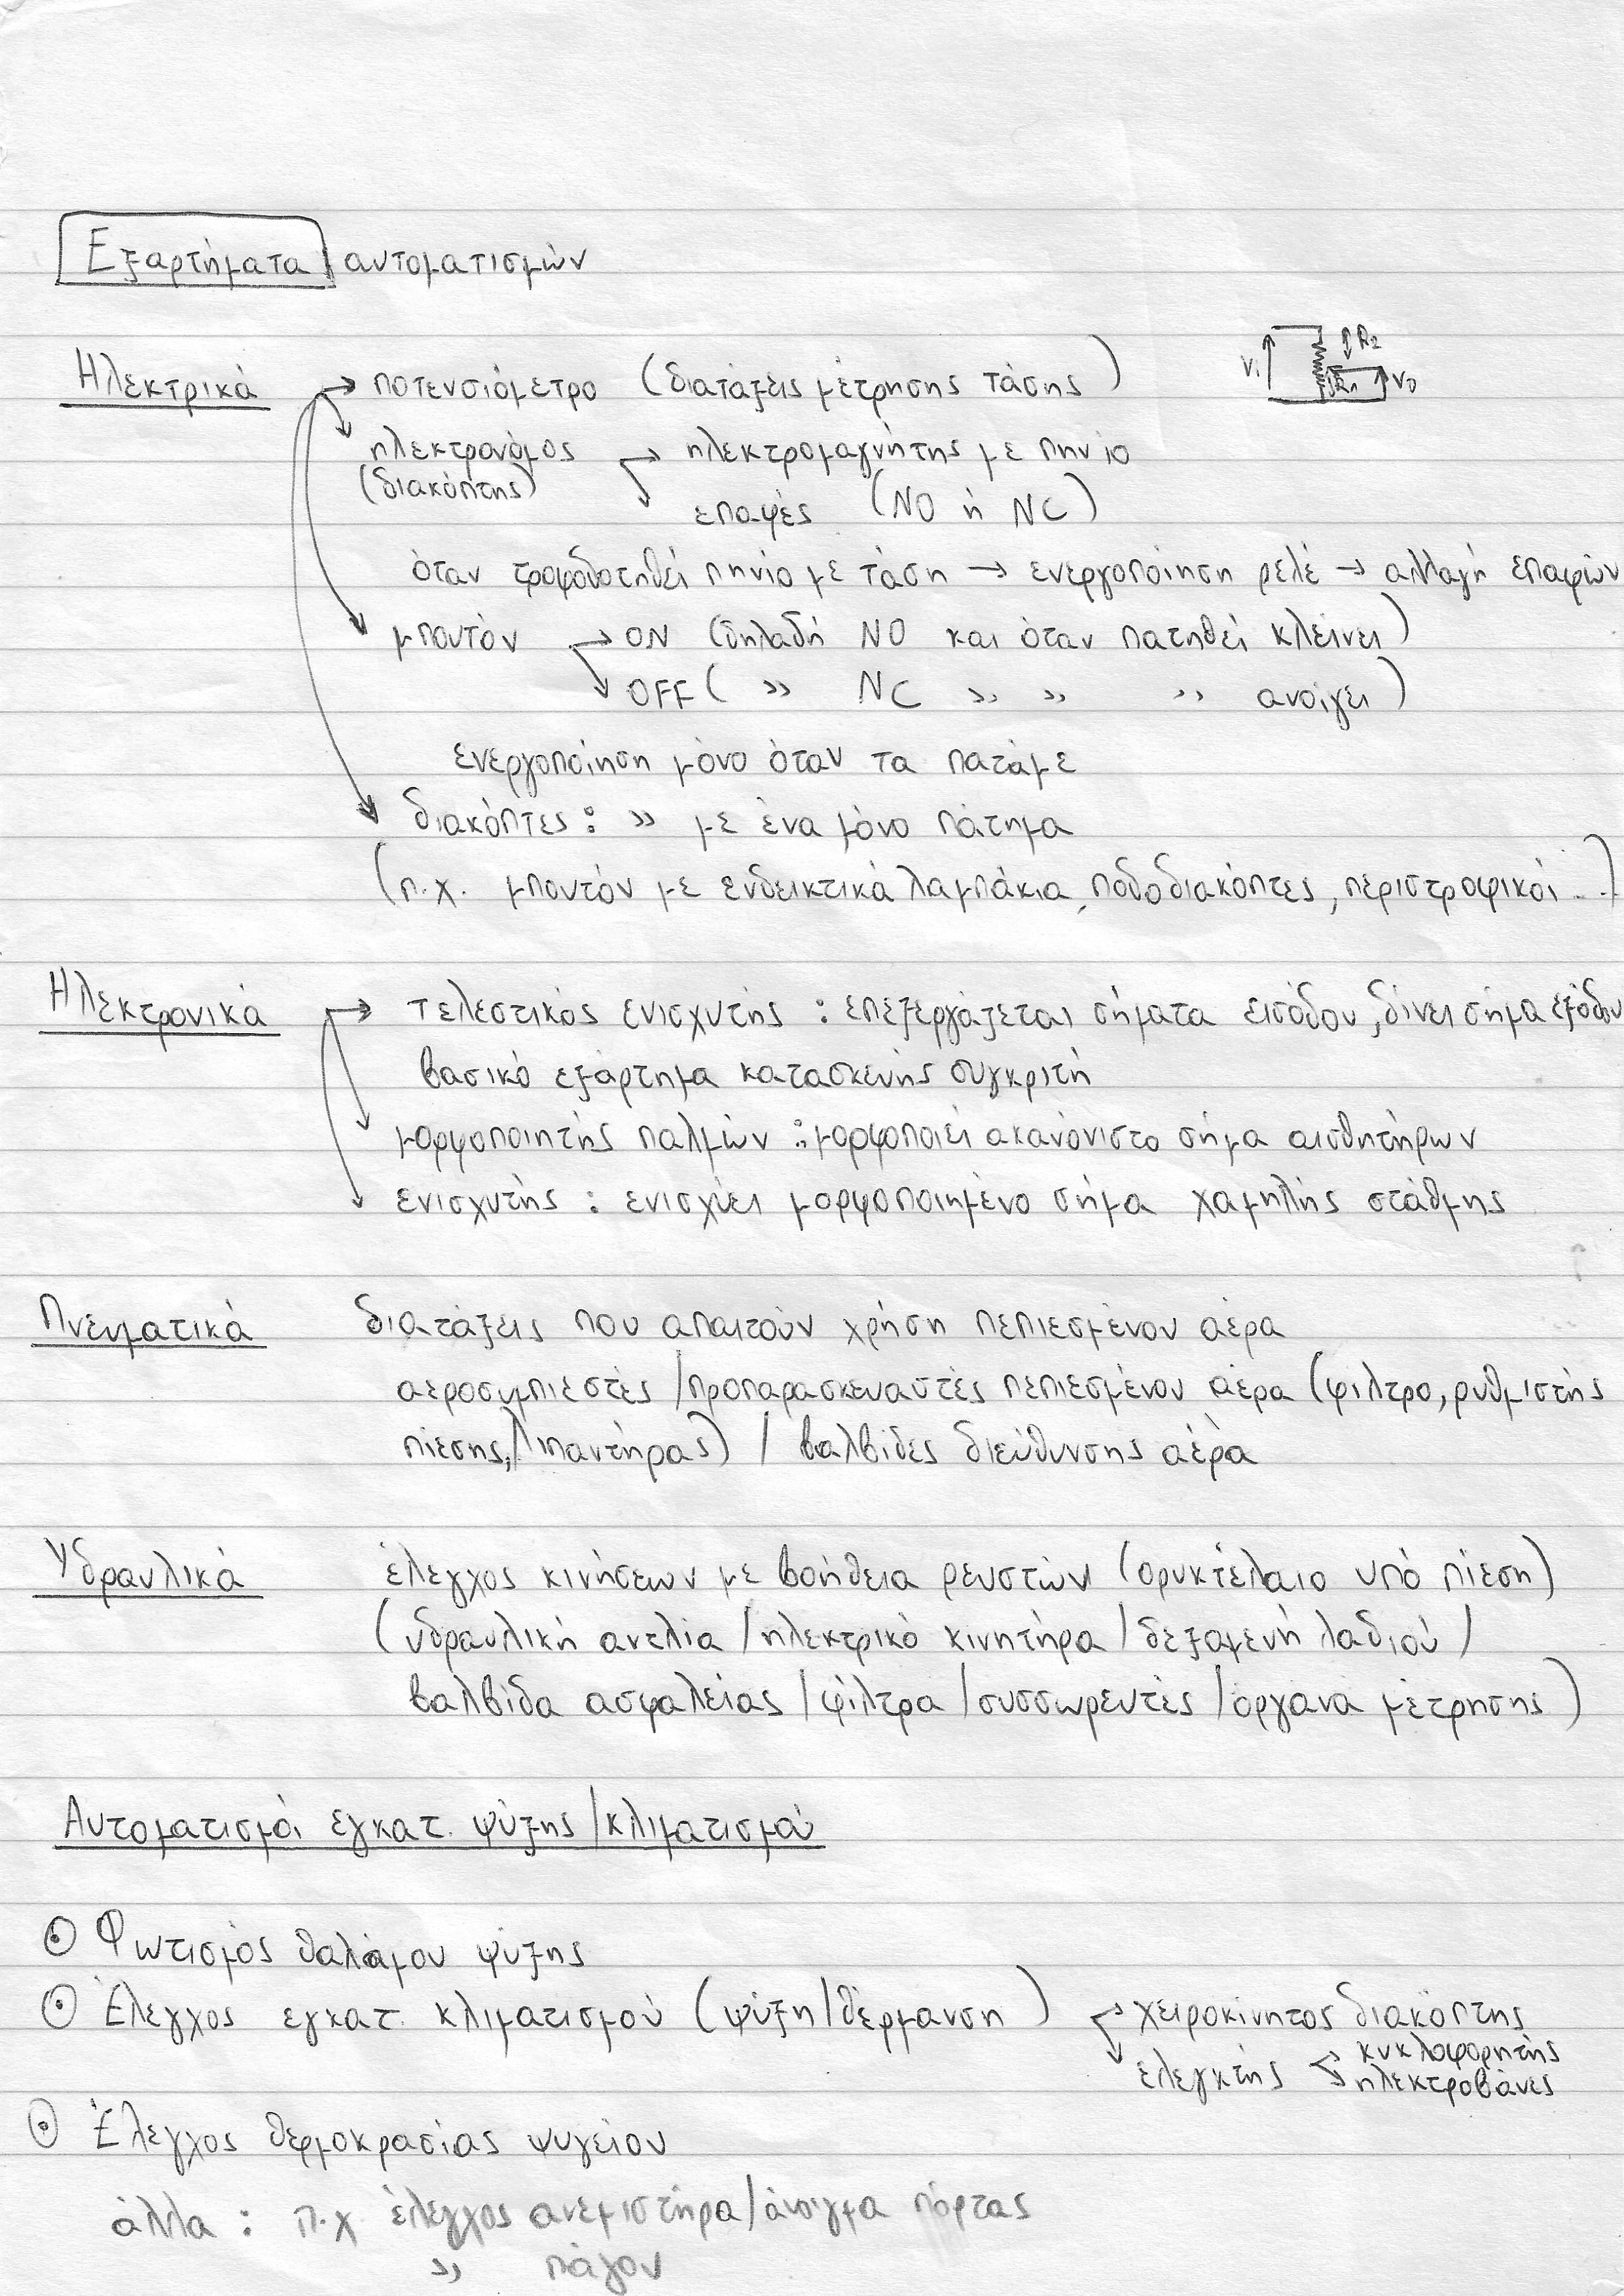 Εξαρτήματα αυτοματισμών
Ηλεκτρικά → ποτενσιόμετρο (διατάξεις μέτρησης τάσης)
V₁ R₂ R₁ V₀
ηλεκτρονόμος → ηλεκτρομαγνήτης με πηνίο
(διακόπτης)
επαφές (NO ή NC)
όταν τροφοδοτηθεί πηνίο με τάση → ενεργοποίηση ρελέ → αλλαγή επαφών
μπουτόν → ON (δηλαδή NO και όταν πατηθεί κλείνει)
OFF ( » NC » » » ανοίγει)
ενεργοποίηση μόνο όταν τα πατάμε
διακόπτες: » με ένα μόνο πάτημα
(π.χ. μπουτόν με ενδεικτικά λαμπάκια, ποδοδιακόπτες, περιστροφικοί...)
Ηλεκτρονικά → τελεστικός ενισχυτής : επεξεργάζεται σήματα εισόδου, δίνει σήμα εξόδου
βασικό εξάρτημα κατασκευής συγκριτή
μορφοποιητής παλμών : μορφοποιεί ακανόνιστο σήμα αισθητήρων
ενισχυτής : ενισχύει μορφοποιημένο σήμα χαμηλής στάθμης
Πνευματικά διατάξεις που απαιτούν χρήση πεπιεσμένου αέρα
αεροσυμπιεστές /προπαρασκευαστές πεπιεσμένου αέρα (φίλτρο, ρυθμιστής
πίεσης, λιπαντήρας) / βαλβίδες διεύθυνσης αέρα
Υδραυλικά έλεγχος κινήσεων με βοήθεια ρευστών (ορυκτέλαιο υπό πίεση)
(υδραυλική αντλία /ηλεκτρικό κινητήρα /δεξαμενή λαδιού /
βαλβίδα ασφαλείας /φίλτρα /συσσωρευτές /όργανα μέτρησης )
Αυτοματισμοί εγκατ. ψύξης /κλιματισμού
⊙ Φωτισμός θαλάμου ψύξης
⊙ Έλεγχος εγκατ. κλιματισμού (ψύξη/θέρμανση) → χειροκίνητος διακόπτης
ελεγκτής → κυκλοφορητής
ηλεκτροβάνες
⊙ Έλεγχος θερμοκρασίας ψυγείου
άλλα : π.χ έλεγχος ανεμιστήρα/άνοιγμα πόρτας
» πάγου